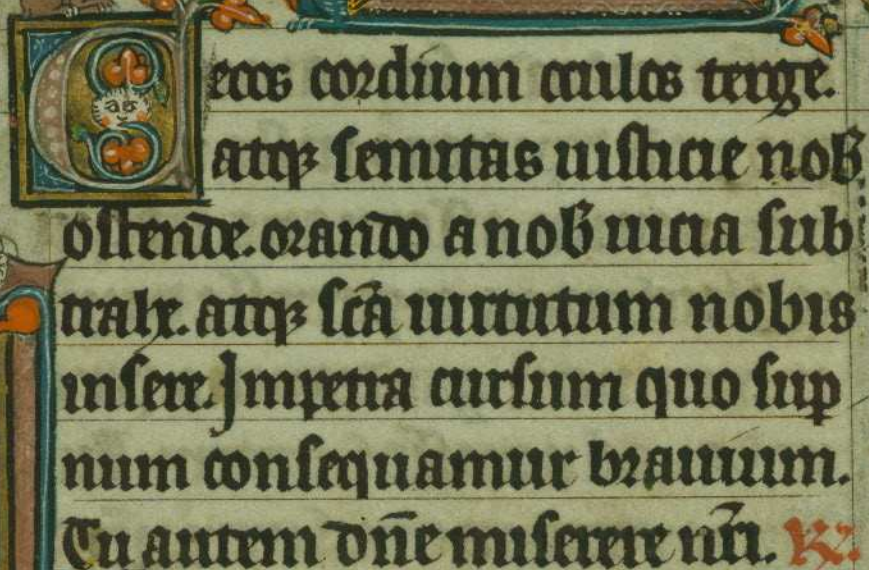 Cecos cordium oculos terge.
atqꝫ semitas iusticie nob̄
ostende. orando a nob̄ uicia sub
trahe. atqꝫ sc̄a uirtutum nobis
insere. Impetra cursum quo suꝑ
num consequamur brauium.
Tu autem dn̄e miserere nr̄i. ℟.